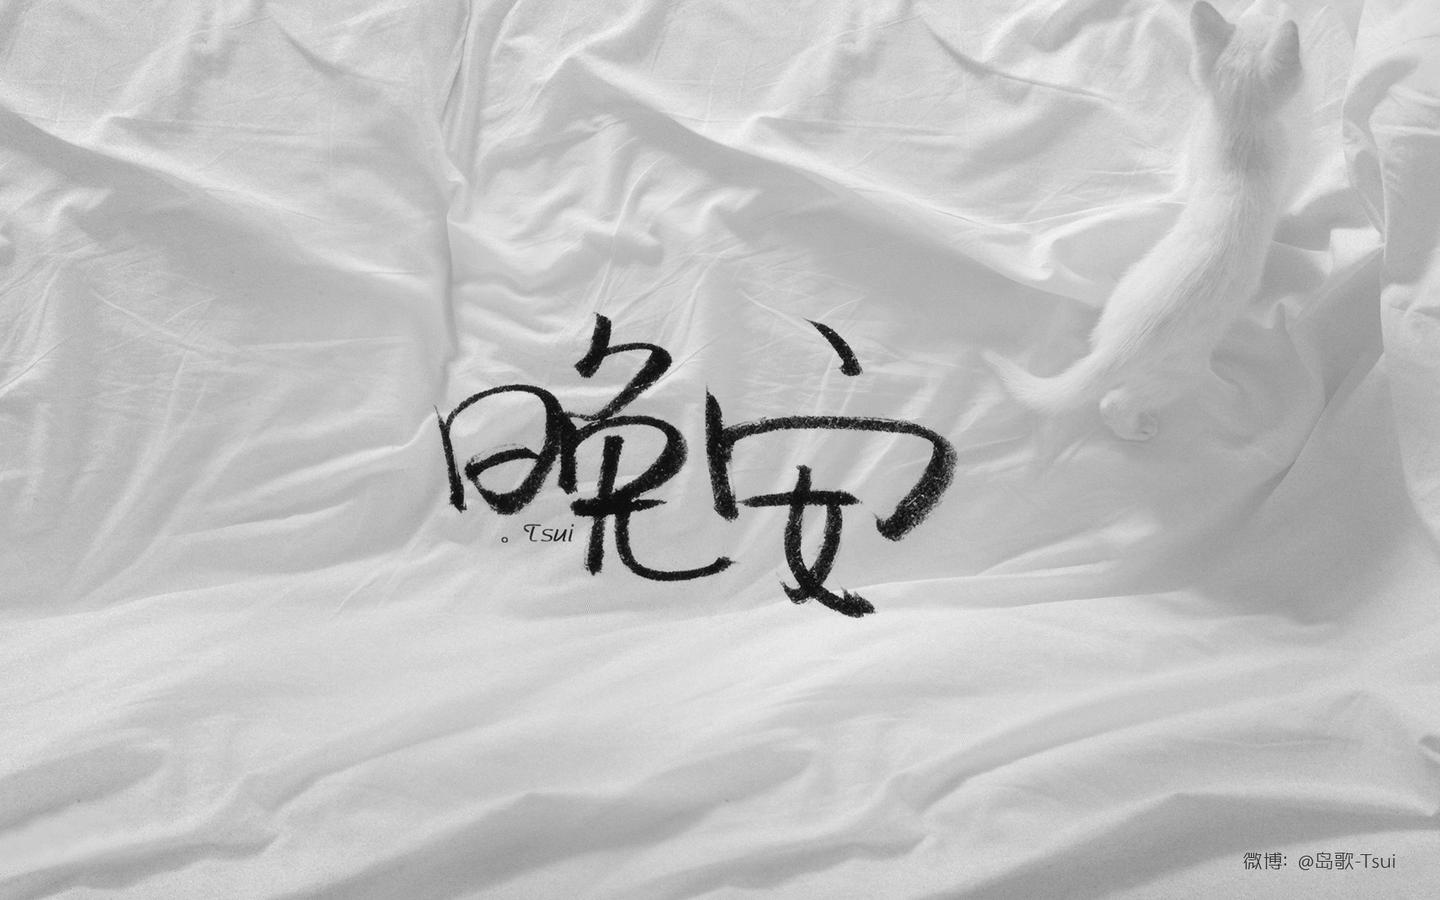 晚安
。Tsui
微博：@岛歌-Tsui